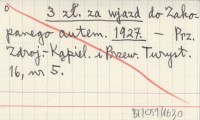 3 zł. za wjazd do Zako-
panego autem. 1927. — Prz.
Zdroj.-Kąpiel. i Przew. Turyst.
16, nr 5.